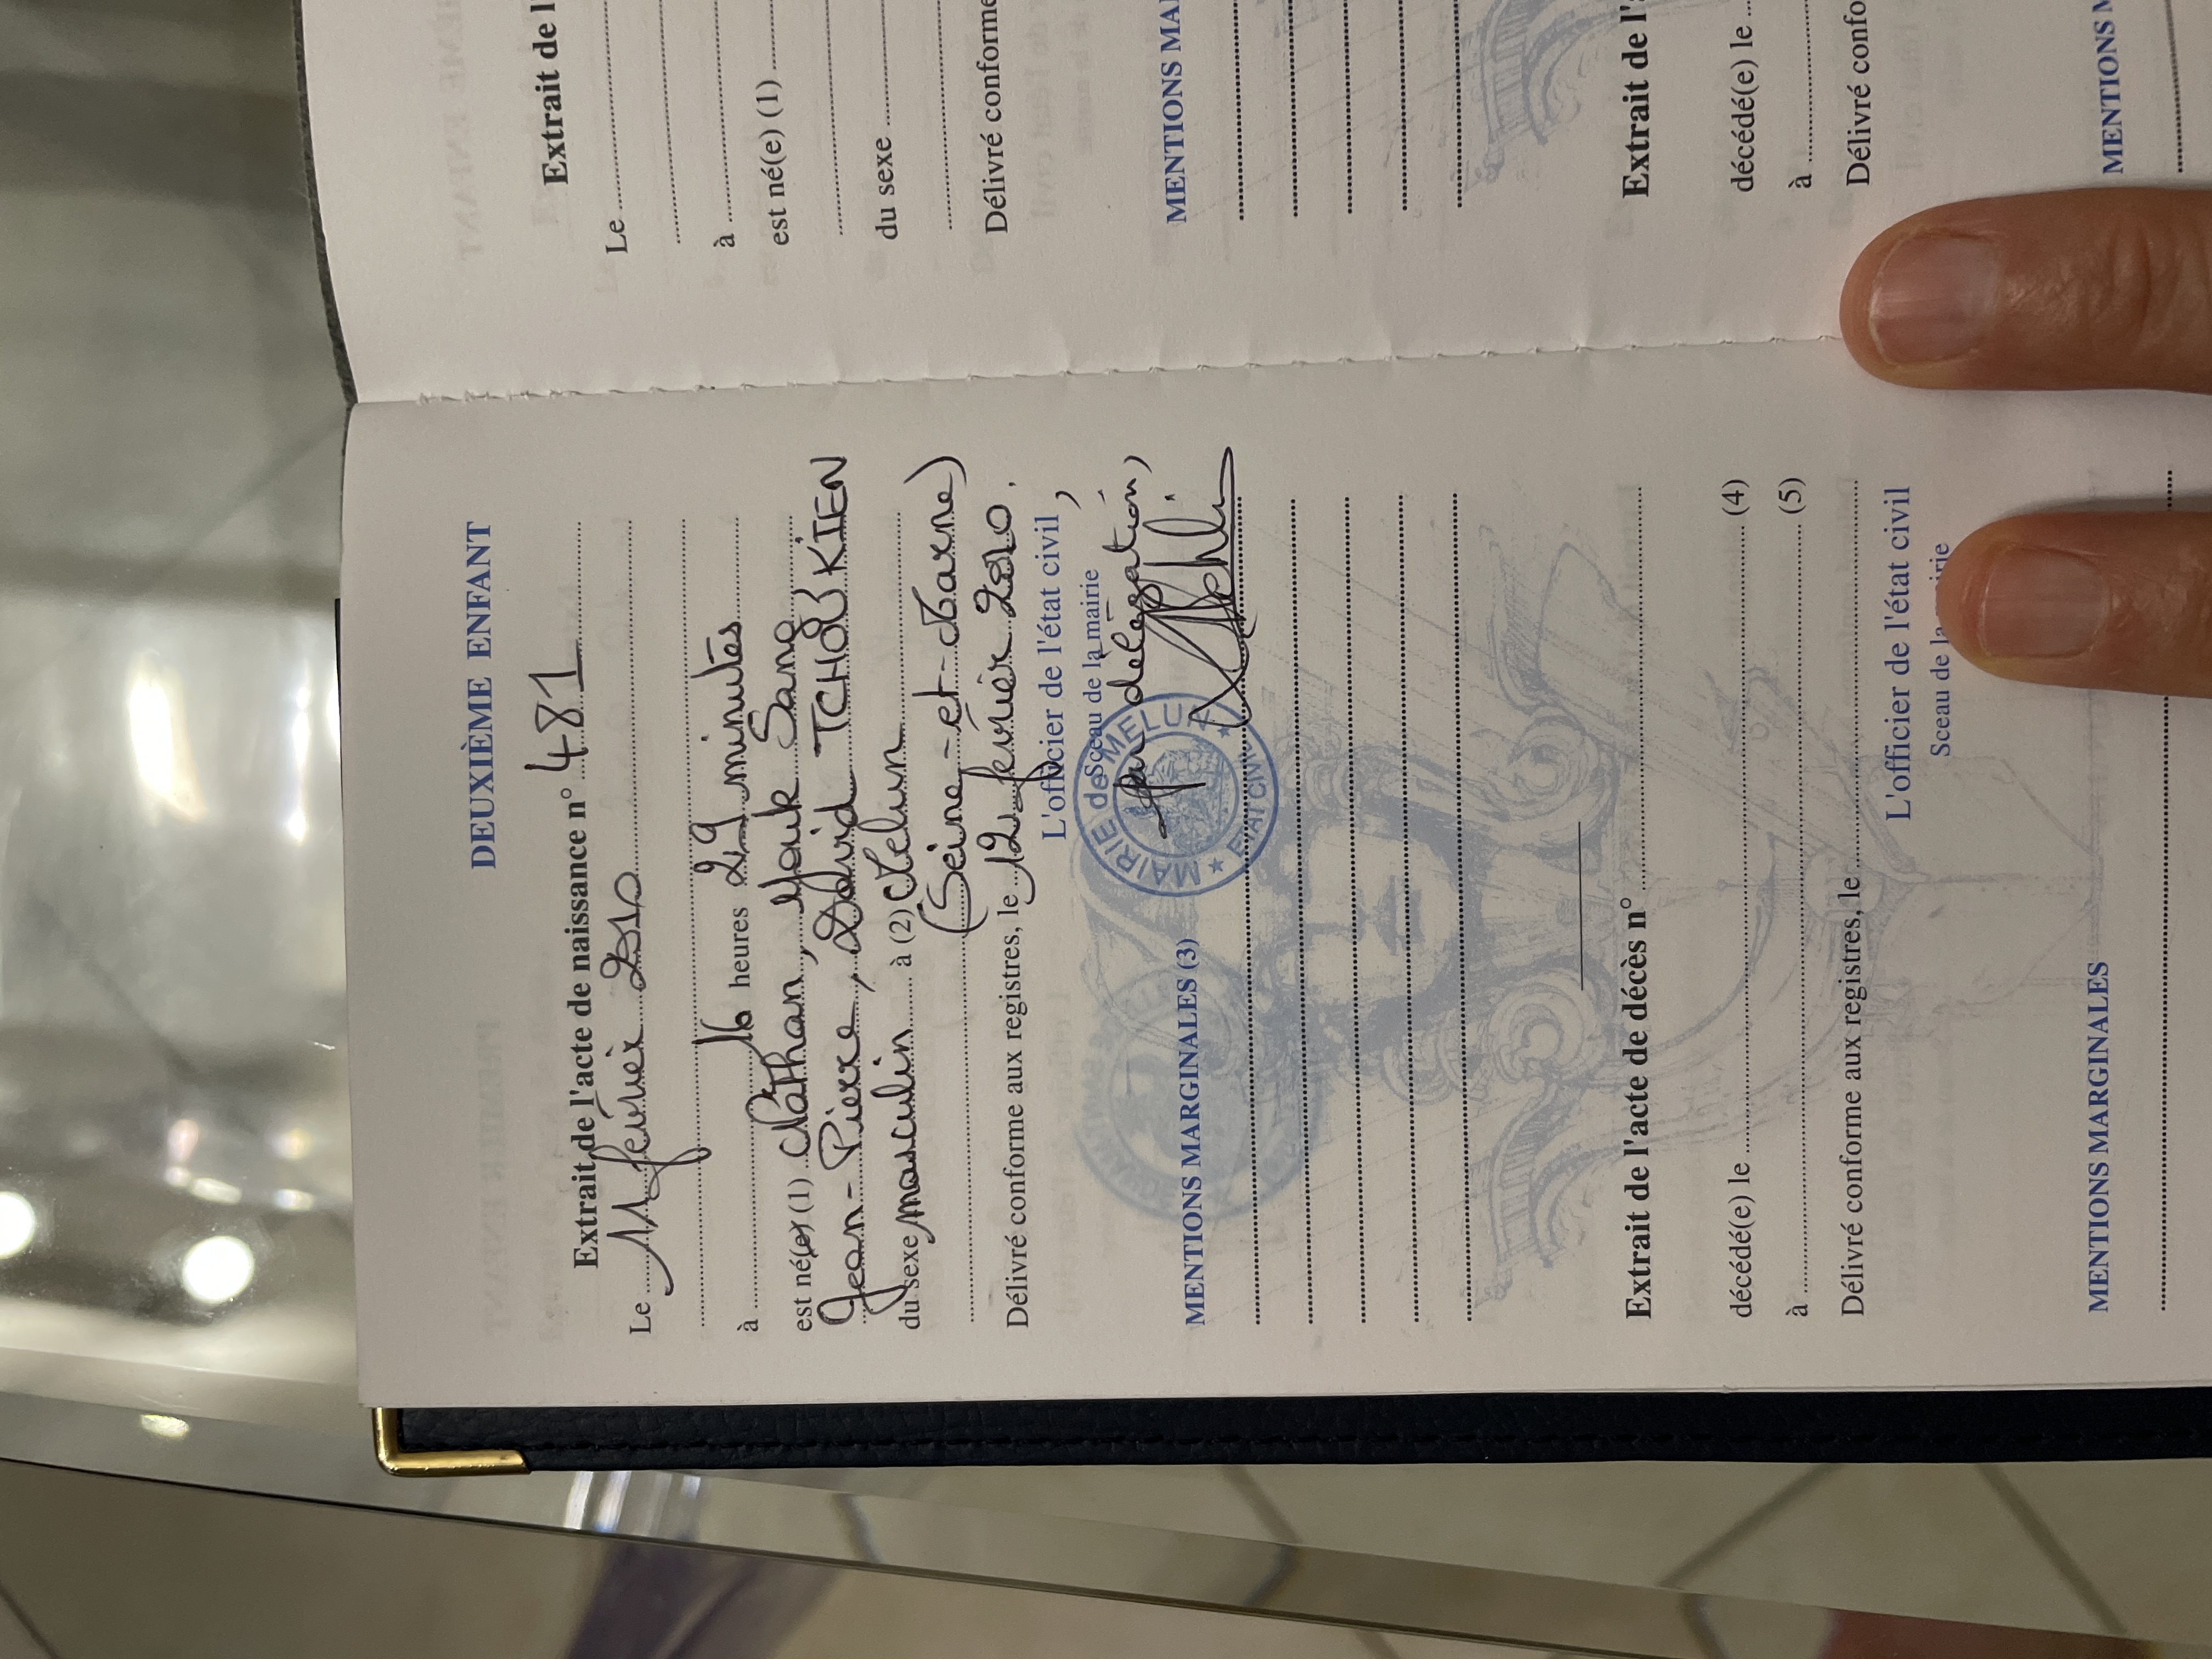 DEUXIÈME ENFANT
Extrait de l'acte de naissance n° 481
Le 11 février 2010
à 16 heures 29 minutes
est né(e) (1) Nathan, Youk Sang
Jean-Pierre, David TCHOU KIEN
du sexe masculin à (2) Melun
(Seine-et-Marne)
Délivré conforme aux registres, le 12 février 2010.
L'officier de l'état civil,
Sceau de la mairie
par délégation,
MAIRIE de MELUN
ÉTAT CIVIL
MENTIONS MARGINALES (3)
Extrait de l'acte de décès n°
décédé(e) le (4)
à (5)
Délivré conforme aux registres, le
L'officier de l'état civil
Sceau de la mairie
MENTIONS MARGINALES
Extrait de l
Le
à
est né(e) (1)
du sexe
Délivré conforme
MENTIONS MA
Extrait de l'a
décédé(e) le
à
Délivré confo
MENTIONS M